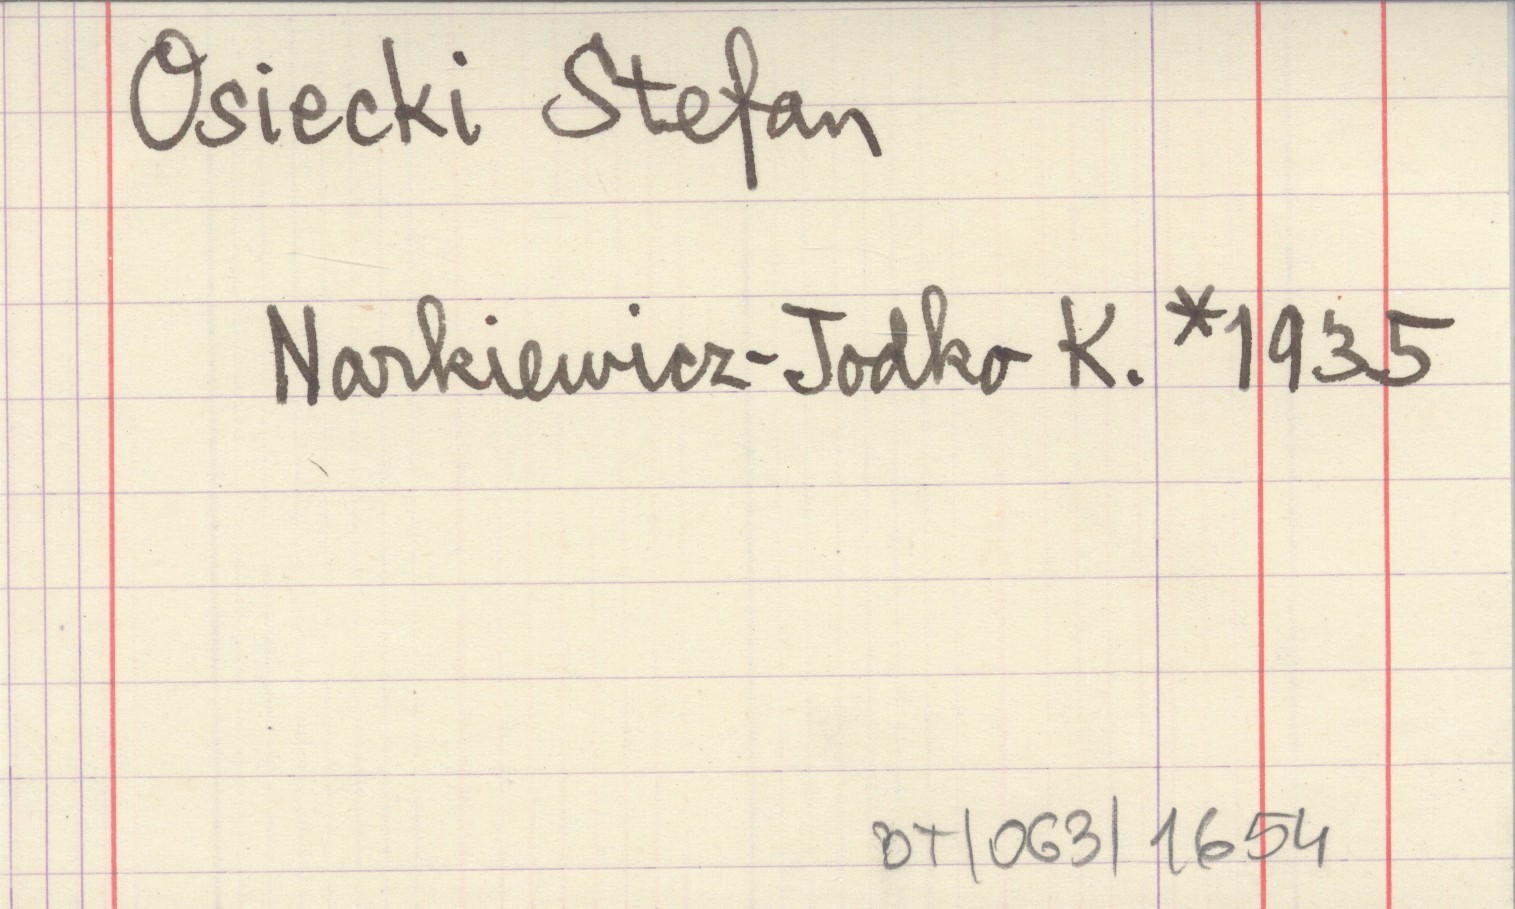 Osiecki Stefan
Narkiewicz-Jodko K. *1935
DT/063/1654